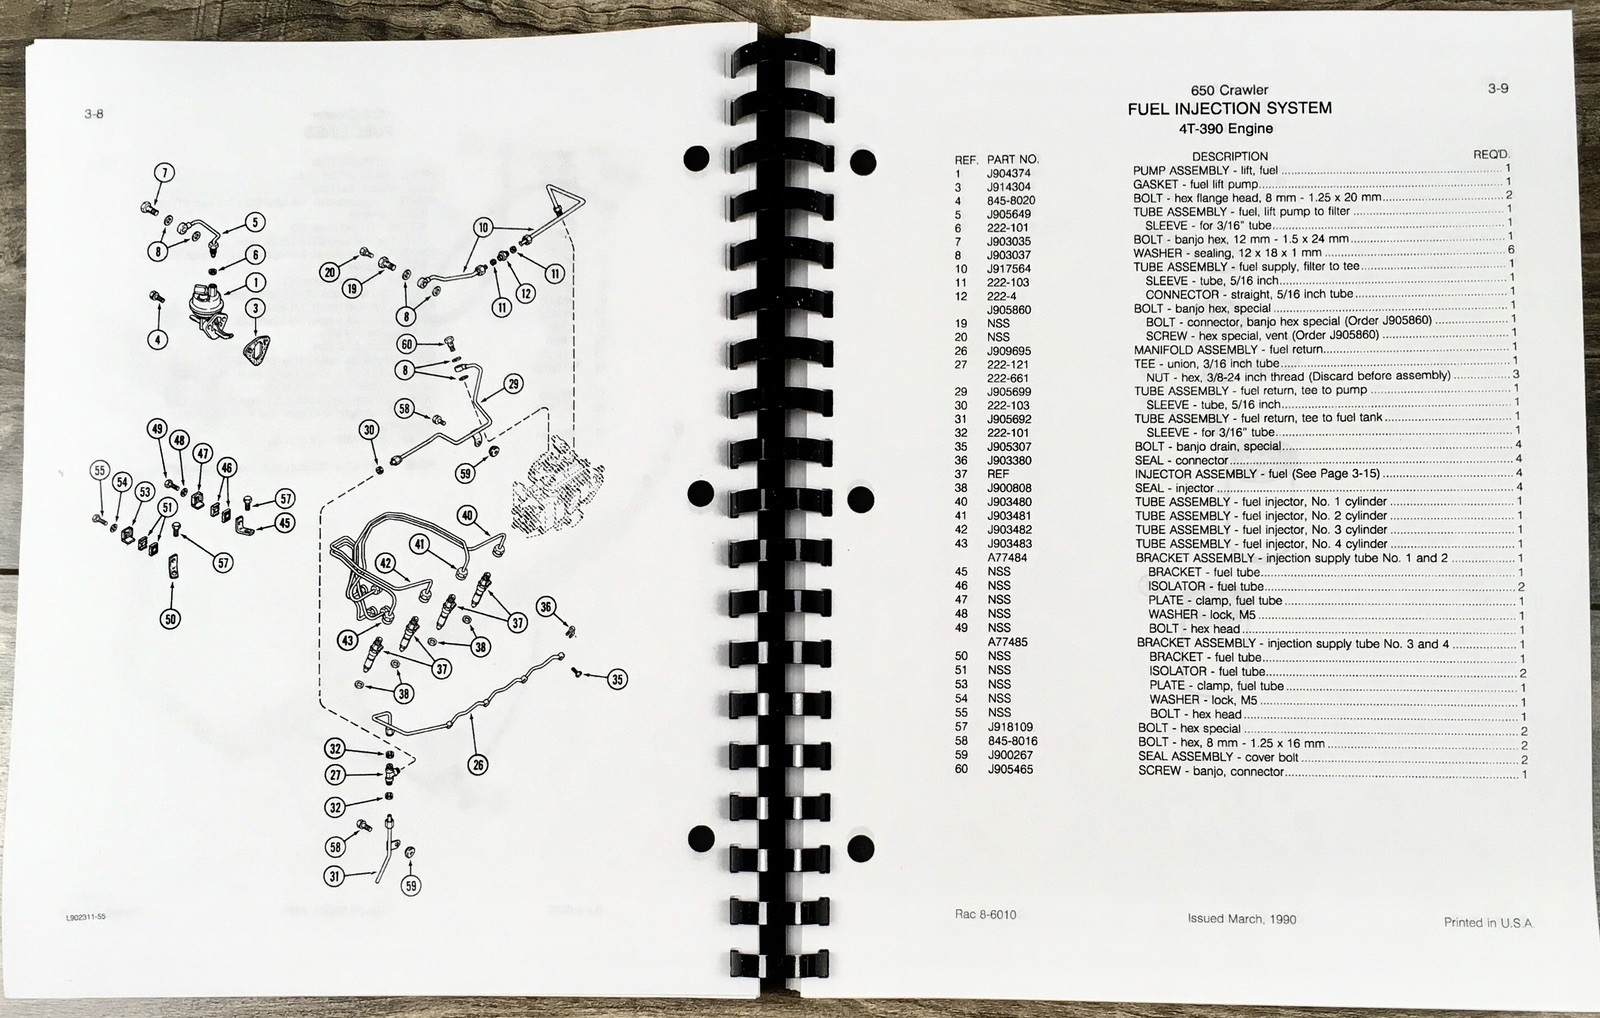 3-8
7
5
8
6
1
3
4
10
20
19
8
11
12
11
60
8
29
58
30
59
49
48
47
46
55
54
53
51
57
45
57
50
40
41
42
43
37
38
37
38
36
35
26
32
27
32
58
31
59
L902311-55
650 Crawler
3-9
FUEL INJECTION SYSTEM
4T-390 Engine
REF. PART NO. DESCRIPTION REQ'D.
1 J904374 PUMP ASSEMBLY - lift, fuel 1
3 J914304 GASKET - fuel lift pump 1
4 845-8020 BOLT - hex flange head, 8 mm - 1.25 x 20 mm 2
5 J905649 TUBE ASSEMBLY - fuel, lift pump to filter 1
6 222-101 SLEEVE - for 3/16" tube 1
7 J903035 BOLT - banjo hex, 12 mm - 1.5 x 24 mm 1
8 J903037 WASHER - sealing, 12 x 18 x 1 mm 6
10 J917564 TUBE ASSEMBLY - fuel supply, filter to tee 1
11 222-103 SLEEVE - tube, 5/16 inch 1
12 222-4 CONNECTOR - straight, 5/16 inch tube 1
J905860 BOLT - banjo hex, special 1
19 NSS BOLT - connector, banjo hex special (Order J905860) 1
20 NSS SCREW - hex special, vent (Order J905860) 1
26 J909695 MANIFOLD ASSEMBLY - fuel return 1
27 222-121 TEE - union, 3/16 inch tube 1
222-661 NUT - hex, 3/8-24 inch thread (Discard before assembly) 3
29 J905699 TUBE ASSEMBLY - fuel return, tee to pump 1
30 222-103 SLEEVE - tube, 5/16 inch 1
31 J905692 TUBE ASSEMBLY - fuel return, tee to fuel tank 1
32 222-101 SLEEVE - for 3/16" tube 1
35 J905307 BOLT - banjo drain, special 4
36 J903380 SEAL - connector 4
37 REF INJECTOR ASSEMBLY - fuel (See Page 3-15) 4
38 J900808 SEAL - injector 4
40 J903480 TUBE ASSEMBLY - fuel injector, No. 1 cylinder 1
41 J903481 TUBE ASSEMBLY - fuel injector, No. 2 cylinder 1
42 J903482 TUBE ASSEMBLY - fuel injector, No. 3 cylinder 1
43 J903483 TUBE ASSEMBLY - fuel injector, No. 4 cylinder 1
A77484 BRACKET ASSEMBLY - injection supply tube No. 1 and 2 1
45 NSS BRACKET - fuel tube 1
46 NSS ISOLATOR - fuel tube 2
47 NSS PLATE - clamp, fuel tube 1
48 NSS WASHER - lock, M5 1
49 NSS BOLT - hex head 1
A77485 BRACKET ASSEMBLY - injection supply tube No. 3 and 4 1
50 NSS BRACKET - fuel tube 1
51 NSS ISOLATOR - fuel tube 2
53 NSS PLATE - clamp, fuel tube 1
54 NSS WASHER - lock, M5 1
55 NSS BOLT - hex head 1
57 J918109 BOLT - hex special 2
58 845-8016 BOLT - hex, 8 mm - 1.25 x 16 mm 2
59 J900267 SEAL ASSEMBLY - cover bolt 2
60 J905465 SCREW - banjo, connector 1
Rac 8-6010
Issued March, 1990
Printed in U.S.A.